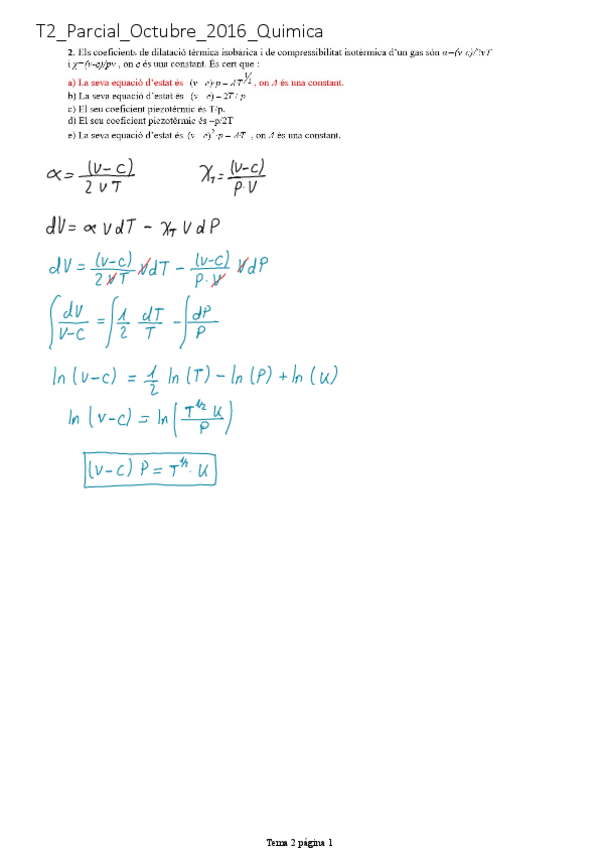 T2_Parcial_Octubre_2016_Quimica
2. Els coeficients de dilatació tèrmica isobàrica i de compressibilitat isotèrmica d'un gas són α=(v c)/2vT
i χ=(v-c)/pv , on c és una constant. És cert que :
a) La seva equació d'estat és (v c)·p = AT^1/2 , on A és una constant.
b) La seva equació d'estat és (v c) = 2T / p
c) El seu coeficient piezotèrmic és T/p.
d) El seu coeficient piezotèrmic és –p/2T
e) La seva equació d'estat és (v c)²·p = AT , on A és una constant.
α = (v-c)/2vT χ_T = (v-c)/P·V
dV = α V dT - χ_T V dP
dV = (v-c)/2VT V dT - (v-c)/P·V V dP
∫ dV/V-C = ∫ 1/2 dT/T - ∫ dP/P
ln (v-c) = 1/2 ln (T) - ln (P) + ln (U)
ln (v-c) = ln (T^1/2 U/P)
(v-c) P = T^1/2 · U
Tema 2 página 1